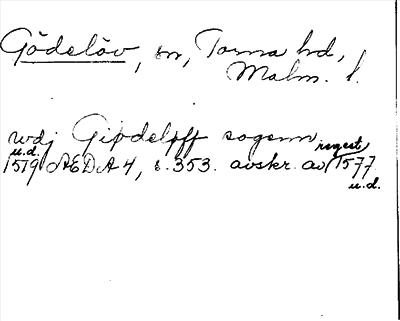 Gödelöv, sn, Torna hd,
Malm. l.
wdj Giødeløff sogenn regest
u.d.
1519 ÆDA 4, s. 353. avskr. av 1577
u.d.